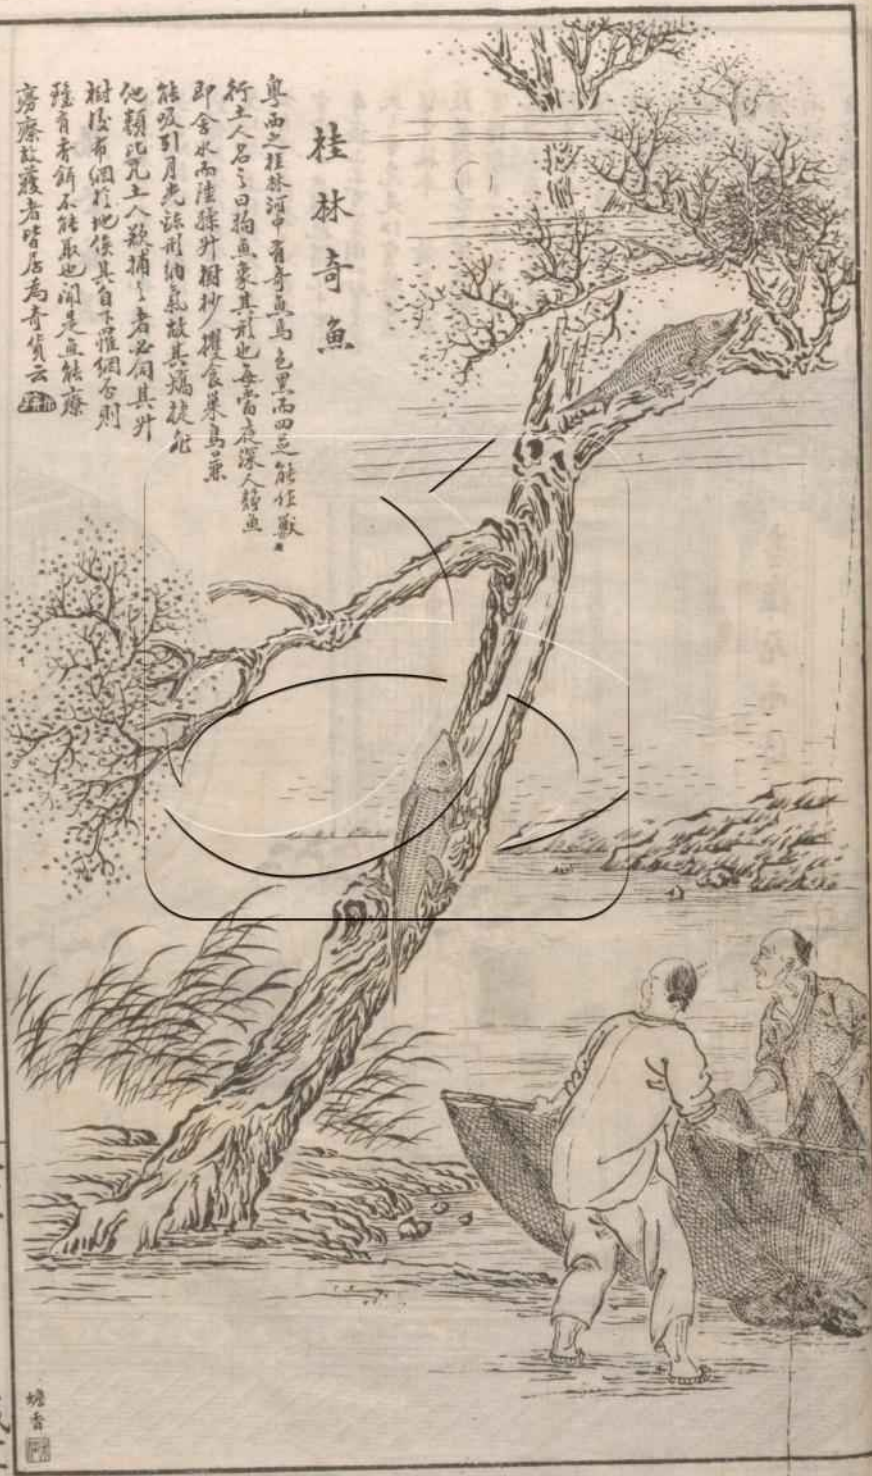 桂林奇魚
粵西之桂林河中有奇魚焉色黑而四足能作獸
行土人名之曰狗魚象其形也每當夜深人靜魚
即舍水而陸緣升樹抄攫食巢鳥兼
能吸引月光 形納氣故其矯捷
他類比兕土人欲捕之者必伺其升
樹後布網於地俟其自下罹網否則
雖有香餌不能取也聞是魚能療
療故獲者皆居為奇貨云
蟾香